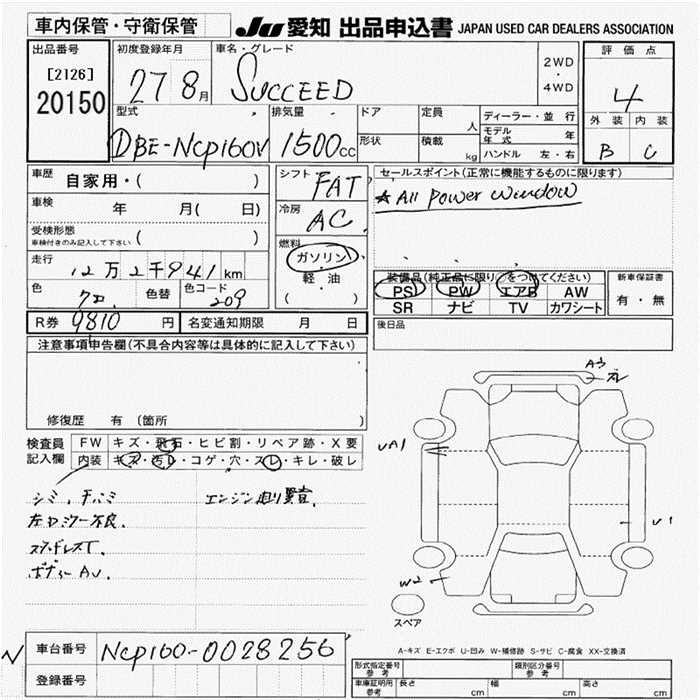 車内保管・守衛保管
JU 愛知 出品申込書 JAPAN USED CAR DEALERS ASSOCIATION
出品番号
[2126]
20150
初度登録年月
27 8月
車名・グレード
SUCCEED
2WD
・
4WD
評価点
4
外装 内装
B C
型式
DBE-NCP160V
排気量
1500cc
ドア
形状
定員
人
積載
kg
ディーラー・並行
モデル年式 年
ハンドル 左・右
車歴
自家用・( )
車検
年 月( 日)
受検形態
車検付きのみ記入して下さい ( )
走行
12万2千941km
色
クロ
色替
色コード
209
シフト
FAT
冷房
AC
燃料
ガソリン
軽・油
( )
セールスポイント(正常に機能するものに限ります)
★ All Power Window
装備品(純正品に限り○をつけてください)
PS PW エアB AW
SR ナビ TV カワシート
新車保証書
有・無
R券 9810 円
名変通知期限 月 日
後日品
注意事項申告欄(不具合内容等は具体的に記入して下さい)
修復歴 有 (箇所 )
検査員記入欄
FW キズ・飛石・ヒビ割・リペア跡・X要
内装 キズ・汚レ・コゲ・穴・スレ・キレ・破レ
シミ、チバミ
エンジン廻り異音
左ドアミラー不良
スタッドレスT.
ボディーAU
Aウ
ズレ
UA1
U1
W2
スペア
A-キズ E-エクボ U-凹み W-補修跡 S-サビ C-腐食 XX-交換済
N
車台番号
NCP160-0028256
登録番号
形式指定番号
参考
類別区分番号
参考
車庫証明用
参考
長さ cm
幅 cm
高さ cm